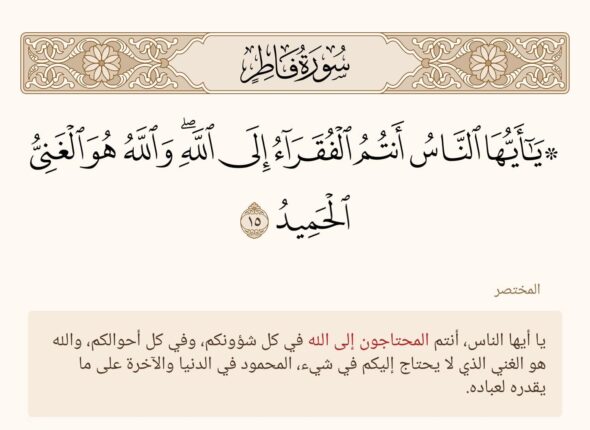 سُورَةُ فَاطِرٍ
۞ يَٰٓأَيُّهَا ٱلنَّاسُ أَنتُمُ ٱلْفُقَرَآءُ إِلَى ٱللَّهِۖ وَٱللَّهُ هُوَ ٱلْغَنِىُّ
ٱلْحَمِيدُ ١٥
المختصر
يا أيها الناس، أنتم المحتاجون إلى الله في كل شؤونكم، وفي كل أحوالكم، والله
هو الغني الذي لا يحتاج إليكم في شيء، المحمود في الدنيا والآخرة على ما
يقدره لعباده.